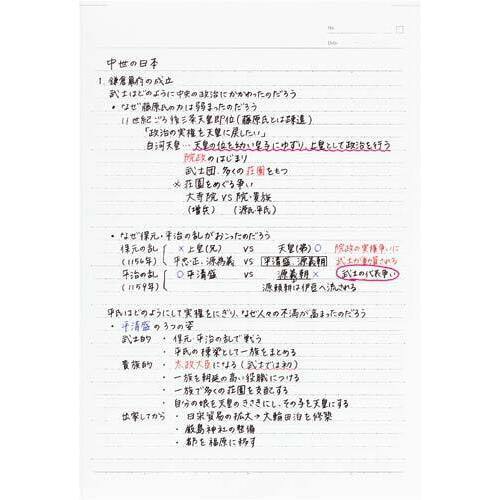 No.
Date
中世の日本
1. 鎌倉幕府の成立
武士はどのように中央の政治にかかわったのだろう
・なぜ藤原氏の力は弱まったのだろう
11世紀ごろ 後三条天皇即位（藤原氏とは疎遠）
「政治の実権を天皇に戻したい」
白河天皇…天皇の位を幼い皇子にゆずり、上皇として政治を行う
院政のはじまり
武士団、多くの荘園をもつ
※荘園をめぐる争い
大寺院 VS 院・貴族
（僧兵）（源氏・平氏）
・なぜ保元・平治の乱がおこったのだろう
保元の乱 × 上皇(兄) VS 天皇(弟) ○ 院政の実権争いに
(1156年) 平忠正、源為義 平清盛、源義朝 武士が動員される
平治の乱 ○ 平清盛 VS 源義朝 × 武士の代表争い
(1159年) 源頼朝は伊豆へ流される
平氏はどのようにして実権をにぎり、なぜ人々の不満が高まったのだろう
・平清盛の3つの姿
武士的・保元・平治の乱で戦う
・平氏の棟梁として一族をまとめる
貴族的・太政大臣になる（武士では初）
・一族を朝廷の高い役職につける
・一族で多くの荘園を支配する
・自分の娘を天皇のきさきにし、その子を天皇にする
出家してから・日宋貿易の拡大→大輪田泊を修築
・厳島神社の整備
・都を福原に移す